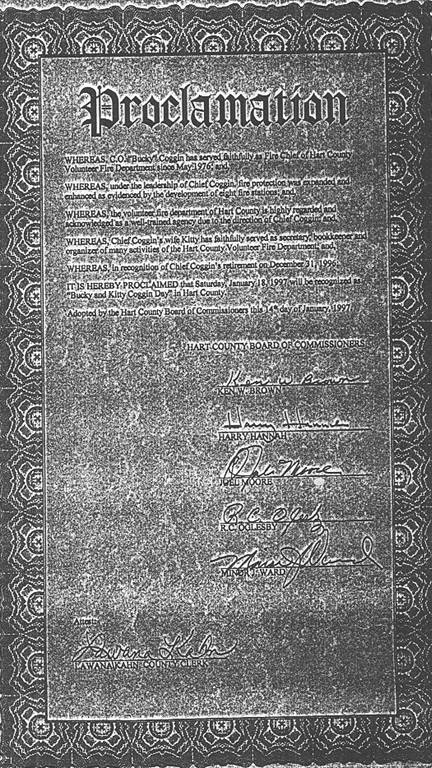 Proclamation
WHEREAS, C.O. "Bucky" Coggin has served faithfully as Fire Chief of Hart County
Volunteer Fire Department since May 1976; and,
WHEREAS, under the leadership of Chief Coggin, fire protection was expanded and
enhanced as evidenced by the development of eight fire stations; and,
WHEREAS, the volunteer fire department of Hart County is highly regarded and
acknowledged as a well-trained agency due to the direction of Chief Coggin; and,
WHEREAS, Chief Coggin's wife Kitty has faithfully served as secretary, bookkeeper and
organizer of many activities of the Hart County Volunteer Fire Department; and,
WHEREAS, in recognition of Chief Coggin's retirement on December 31, 1996,
IT IS HEREBY PROCLAIMED that Saturday, January 18, 1997 will be recognized as
"Bucky and Kitty Coggin Day" in Hart County.
Adopted by the Hart County Board of Commissioners this 14th day of January, 1997.
HART COUNTY BOARD OF COMMISSIONERS
Ken W. Brown
KEN W. BROWN
Harry Hannah
HARRY HANNAH
Joel Moore
JOEL MOORE
R.C. Oglesby
R.C. OGLESBY
WARD
Attest:
Lawana Kahn
LAWANA KAHN, COUNTY CLERK